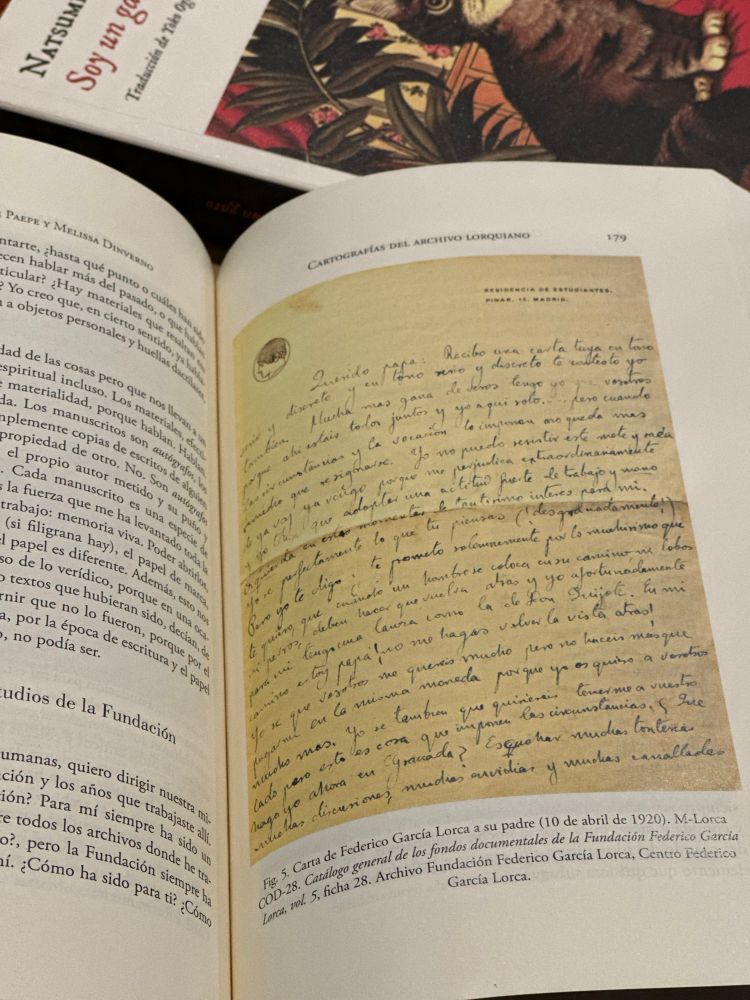 NATSUM
Soy un ga
Traducción de Yoko Og
PAEPE Y MELISSA DINVERNO
ntarte, ¿hasta qué punto o cuáles han sido
ecen hablar más del pasado, o que hablan
rticular? ¿Hay materiales que resalten
? Yo creo que, en cierto sentido, ya habla
n a objetos personales y huellas dactilares
dad de las cosas pero que nos llevan a un
espiritual incluso. Los materiales, efecti-
e materialidad, porque hablan. Hablan
da. Los manuscritos son autógrafos, los
mplemente copias de escritos de alguien
propiedad de otro. No. Son autógrafos
el propio autor metido y su puño y
. Cada manuscrito es una especie de
s la fuerza que me ha levantado toda la
trabajo: memoria viva. Poder abrirlos,
(si filigrana hay), el papel de marca,
el papel es diferente. Además, esto nos
so de lo verídico, porque en una oca-
o textos que hubieran sido, decían, de
rnir que no lo fueron, porque por el
a, por la época de escritura y el papel
o, no podía ser.
tudios de la Fundación
umanas, quiero dirigir nuestra mi-
ación y los años que trabajaste allí.
ción? Para mí siempre ha sido un
re todos los archivos donde he tra-
o?, pero la Fundación siempre ha
mí. ¿Cómo ha sido para ti? ¿Cómo
CARTOGRAFÍAS DEL ARCHIVO LORQUIANO 179
RESIDENCIA DE ESTUDIANTES.
PINAR, 15. MADRID.
Querido papa: Recibo una carta tuya en tono
serio y discreto y en tono serio y discreto te contesto yo
tambien. Mucha mas gana de veros tengo yo que vosotros
porque ahi estais todos juntos y yo aqui solo.... pero cuando
las circunstancias y la vocación lo imponen no queda mas
remedio que resignarse. Yo no puedo resistir este mete y saca
de ya voy ya vengo porque me perjudica extraordinariamente
y yo tengo que adoptar una actitud fuerte de trabajo y mano
izquierda en estos momentos de tantisimo interes para mi.
Yo se perfectamente lo que tu piensas (¡desgraciadamente!)
Pero yo te digo y te prometo solemnemente por lo muchisimo que
te quiero, que cuando un hombre se coloca en su camino ni lobos
ni perros deben hacer que vuelva atras y yo afortunadamente
para mi tengo una lanza como la de Don Quijote. En mi
camino estoy papá! ¡no me hagas volver la vista atras!
Yo se que vosotros me quereis mucho pero no haceis mas que
pagarme en la misma moneda porque yo os quiero a vosotros
mucho mas. Yo se tambien que quisierais tenerme a vuestro
lado pero esto es cosa que imponen las circunstancias. ¿Que
hago yo ahora en Granada? Escuchar muchas tonterias
muchas discusiones, muchas envidias y muchas canalladas
Fig. 5. Carta de Federico García Lorca a su padre (10 de abril de 1920). M-Lorca
COD-28. Catálogo general de los fondos documentales de la Fundación Federico García
Lorca, vol. 5, ficha 28. Archivo Fundación Federico García Lorca, Centro Federico
García Lorca.